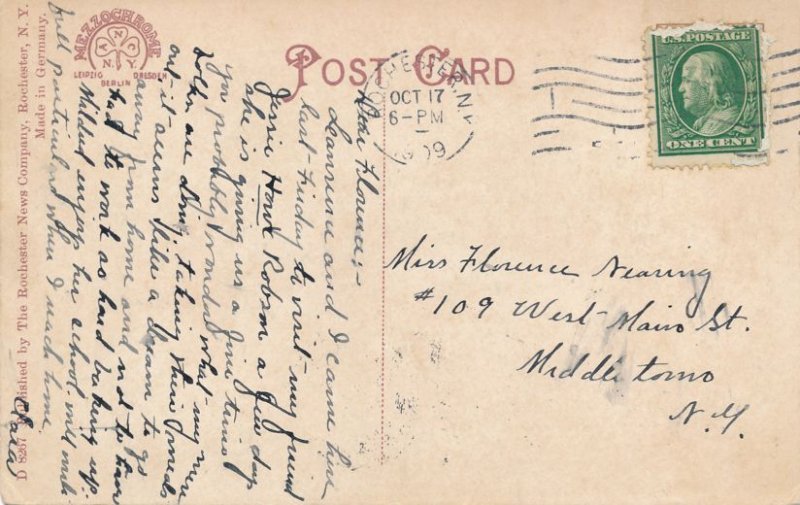 POST CARD
MEZZOCHROME
A N C
N.Y.
LEIPZIG DRESDEN
BERLIN
D 8267 Published by The Rochester News Company, Rochester, N. Y.
Made in Germany.
ROCHESTER, N.Y.
OCT 17
6-PM
1909
U.S. POSTAGE
ONE CENT
Dear Florence:-
Lawrence and I came here
last Friday to visit my friend
Jessie Howk Robson a few days
she is giving us a fine time
you probably wonder what my
folks are doing, taking their meals
out - it seems like a dream to go
away from home and not to have
had to work as hard baking up.
Mildred enjoys her school. will write
full particulars when I reach home
Clara
Miss Florence Nearing
#109 West Main St.
Middletown
N.Y.